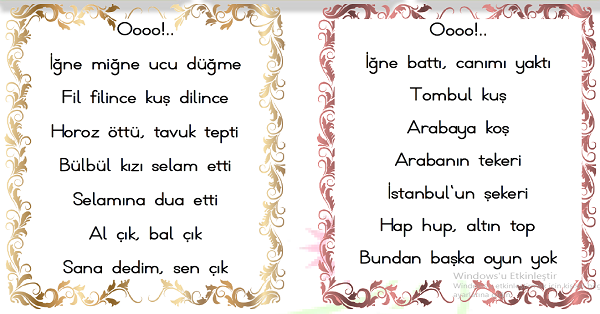 Oooo!..
İğne miğne ucu düğme
Fil filince kuş dilince
Horoz öttü, tavuk tepti
Bülbül kızı selam etti
Selamına dua etti
Al çık, bal çık
Sana dedim, sen çık
Oooo!..
İğne battı, canımı yaktı
Tombul kuş
Arabaya koş
Arabanın tekeri
İstanbul'un şekeri
Hap hup, altın top
Bundan başka oyun yok
Windows'u Etkinleştir